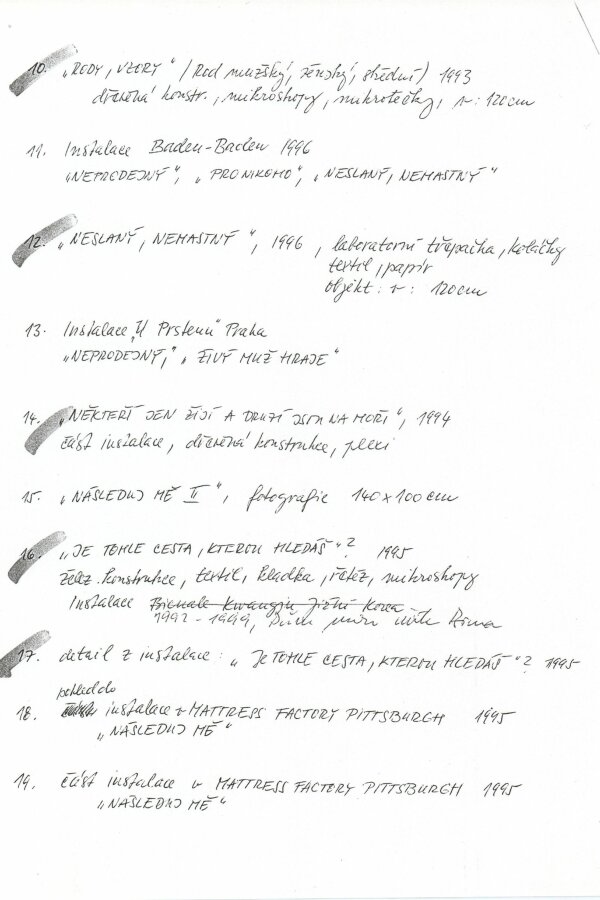 10. „RODY, VZORY" / Rod mužský, ženský, střední) 1993
dřevěná konstr., mikroskopy, mikrotečky, v: 120cm
11. Instalace Baden-Baden 1996
„NEPRODEJNÝ", „PRO NIKOHO", „NESLANÝ, NEMASTNÝ"
12. „NESLANÝ, NEMASTNÝ", 1996, laboratorní třepačka, koláčky
textil, papír
objekt: v: 120cm
13. Instalace „U Prstenu" Praha
„NEPRODEJNÝ," „ŽIVÝ MUŽ HRAJE"
14. „NĚKTEŘÍ JEN ŽIJÍ A DRUZÍ JSOU NA MOŘI", 1994
část instalace, dřevěná konstrukce, plexi
15. „NÁSLEDUJ MĚ II", fotografie 140 x 100 cm
16. „JE TOHLE CESTA, KTEROU HLEDÁŠ"? 1995
želez. konstrukce, textil, kladka, řetěz, mikroskopy
Instalace Bienale Kwangju Jižní Korea
1992 - 1999,
17. detail z instalace: „JE TOHLE CESTA, KTEROU HLEDÁŠ"? 1995
pohled do
18. instalace v MATTRESS FACTORY PITTSBURGH 1995
„NÁSLEDUJ MĚ"
19. část instalace v MATTRESS FACTORY PITTSBURGH 1995
„NÁSLEDUJ MĚ"